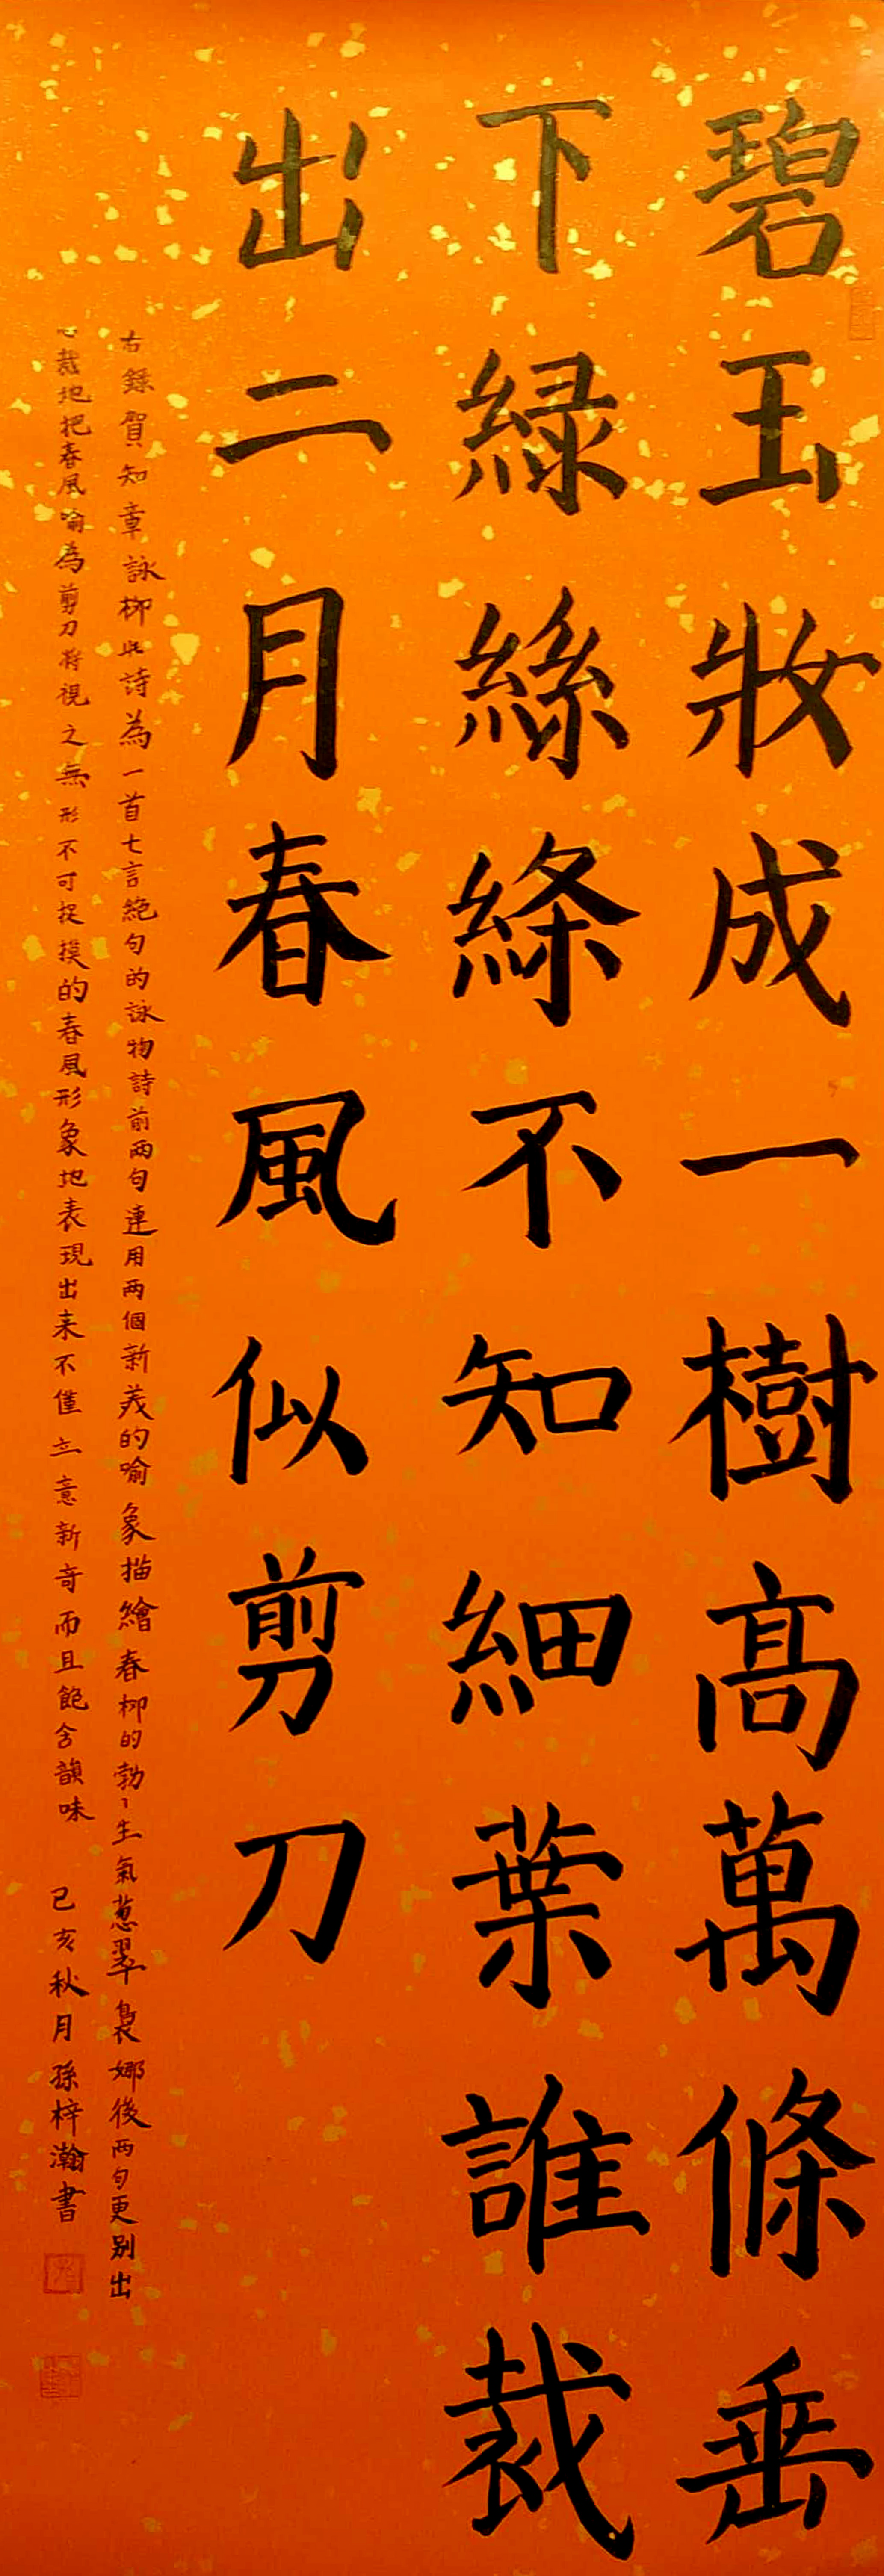 碧玉妝成一樹高萬條垂
下緑絲絛不知細葉誰裁
出二月春風似剪刀
右錄賀知章詠柳此詩為一首七言絕句的詠物詩前兩句連用兩個新美的喻象描繪春柳的勃〻生氣葱翠裊娜後兩句更别出
心裁地把春風喻為剪刀将視之無形不可捉摸的春風形象地表現出来不僅立意新奇而且飽含韻味 己亥秋月孫梓瀚書